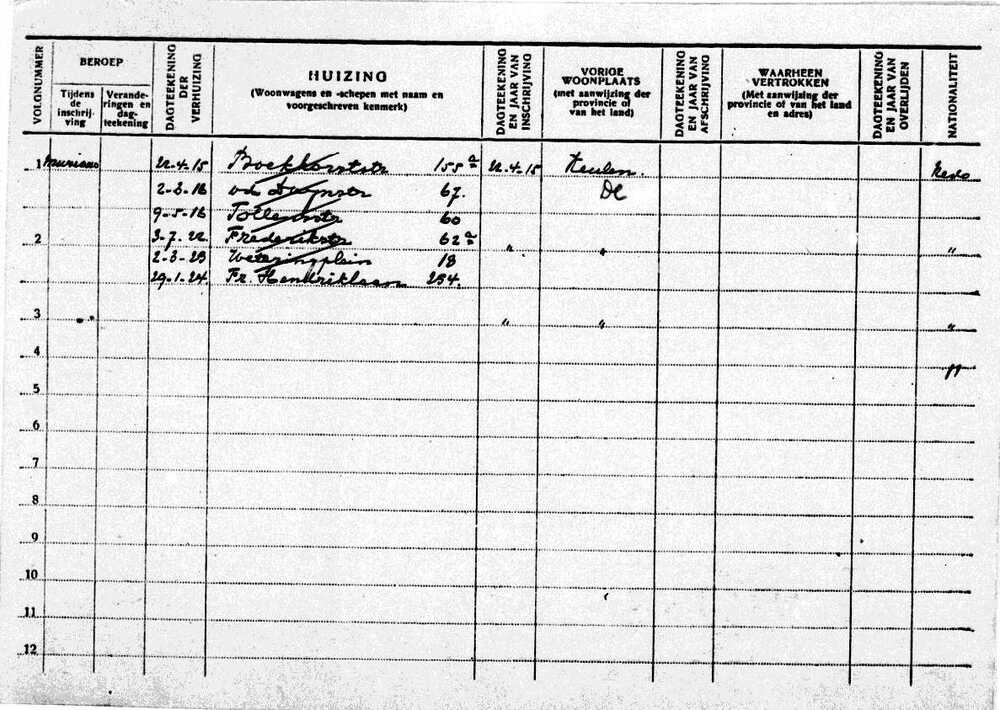 VOLGNUMMER
BEROEP
Tijdens de inschrijving
Veranderingen en dagteekening
DAGTEEKENING DER VERHUIZING
HUIZING
(Woonwagens en -schepen met naam en
voorgeschreven kenmerk)
DAGTEEKENING EN JAAR VAN INSCHRIJVING
VORIGE
WOONPLAATS
(met aanwijzing der
provincie of
van het land)
DAGTEEKENING EN JAAR VAN AFSCHRIJVING
WAARHEEN
VERTROKKEN
(Met aanwijzing der
provincie of van het land
en adres)
DAGTEEKENING EN JAAR VAN OVERLIJDEN
NATIONALITEIT
1 22-4-15 Boekhorststr 155a 22-4-15 Keulen. Nedo
2-3-16 vd Duynstr 67. De
9-5-16 Tollensstr 60
2 3-7-22 Frederikstr 62a " " "
2-3-23 Weteringplein 18
29-1-24. Fr. Hendriklaan 254.
3 " " "
4 "
5
6
7
8
9
10
11
12